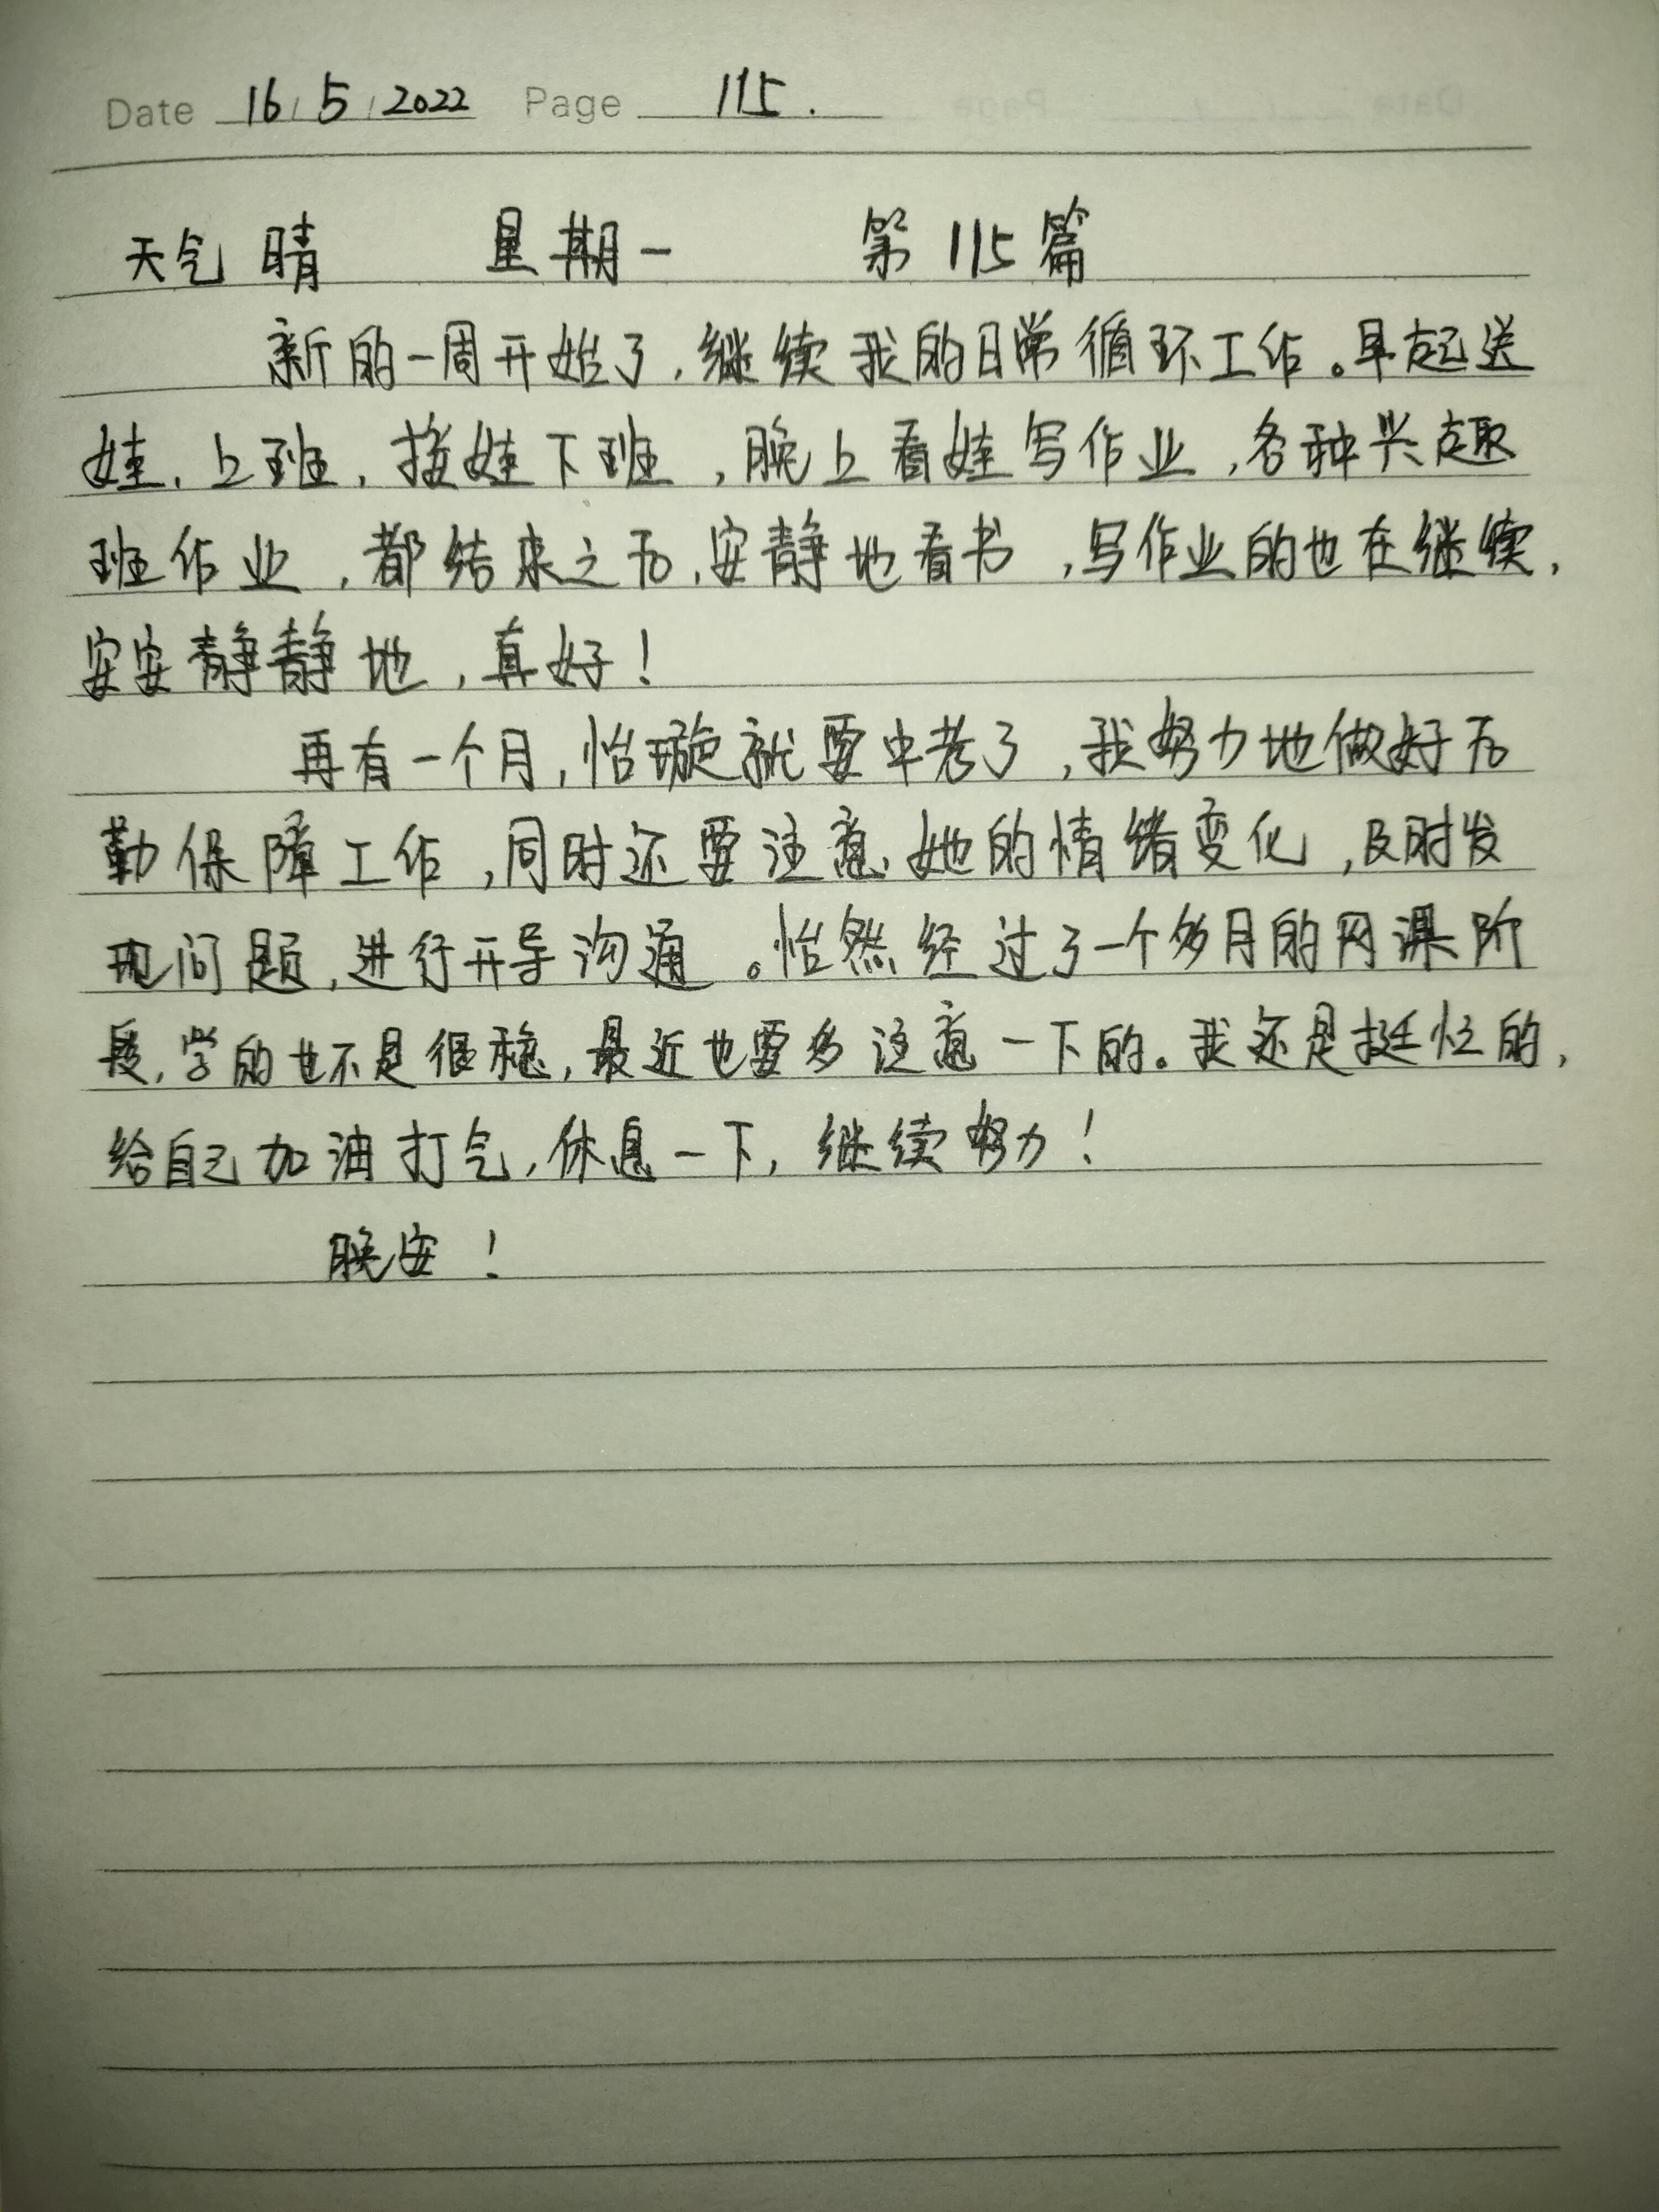 Date 16/5/2022 Page 115.
天气 晴 星期一 第115篇
新的一周开始了,继续我的日常循环工作。早起送
娃,上班,接娃下班,晚上看娃写作业,各种兴趣
班作业,都结束之后,安静地看书,写作业的也在继续,
安安静静地,真好!
再有一个月,怡璇就要中考了,我努力地做好后
勤保障工作,同时还要注意她的情绪变化,及时发
现问题,进行开导沟通。怡然经过了一个多月的网课阶
段,学的也不是很稳,最近也要多注意一下的。我还是挺忙的,
给自己加油打气,休息一下,继续努力!
晚安!